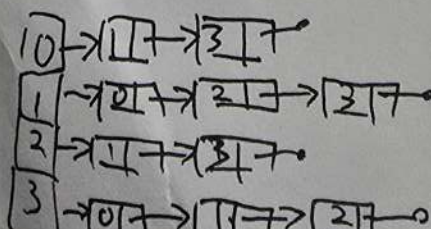 0 → 1 → 3
1 → 0 → 2 → 3
2 → 1 → 3
3 → 0 → 1 → 2